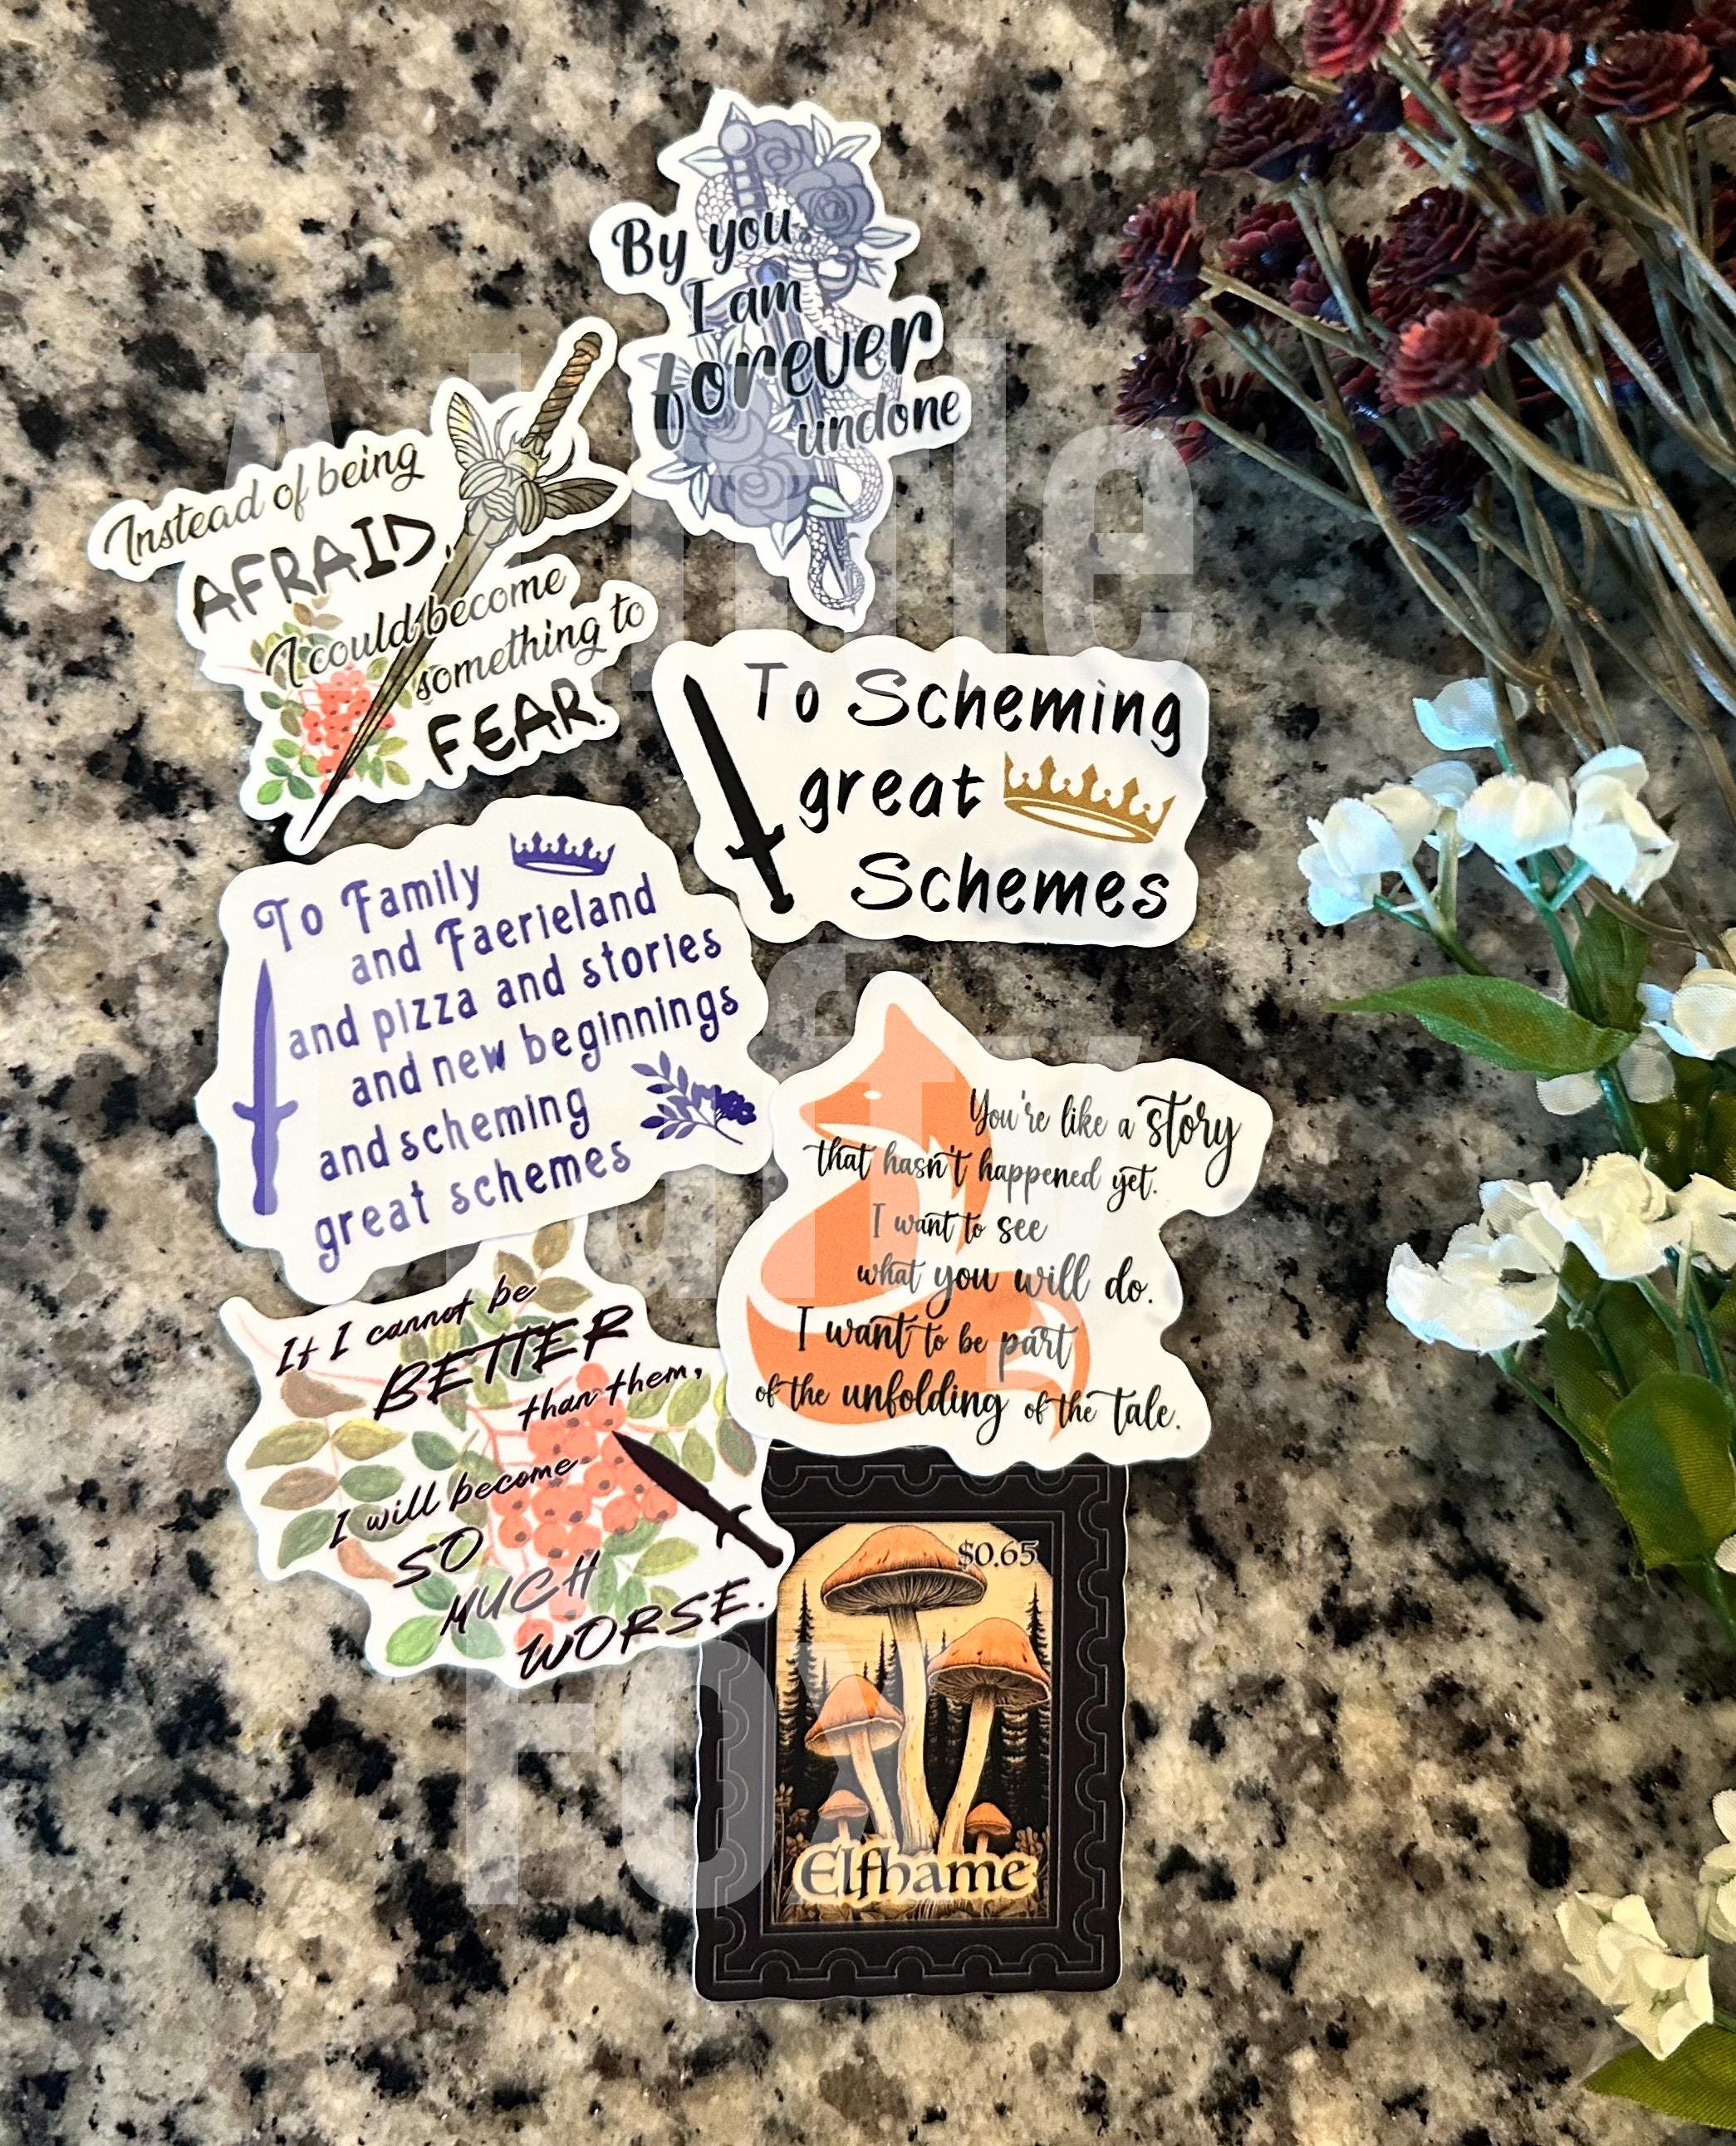 By you
I am
forever
undone
Instead of being
AFRAID,
I could become
something to
FEAR.
To Scheming
great
Schemes
To Family
and Faerieland
and pizza and stories
and new beginnings
and scheming
great schemes
You're like a story
that hasn't happened yet.
I want to see
what you will do.
I want to be part
of the unfolding of the tale.
If I cannot be
BETTER
than them,
I will become
SO
MUCH
WORSE.
$0.65
Elfhame
A Little
Crafty
Fox